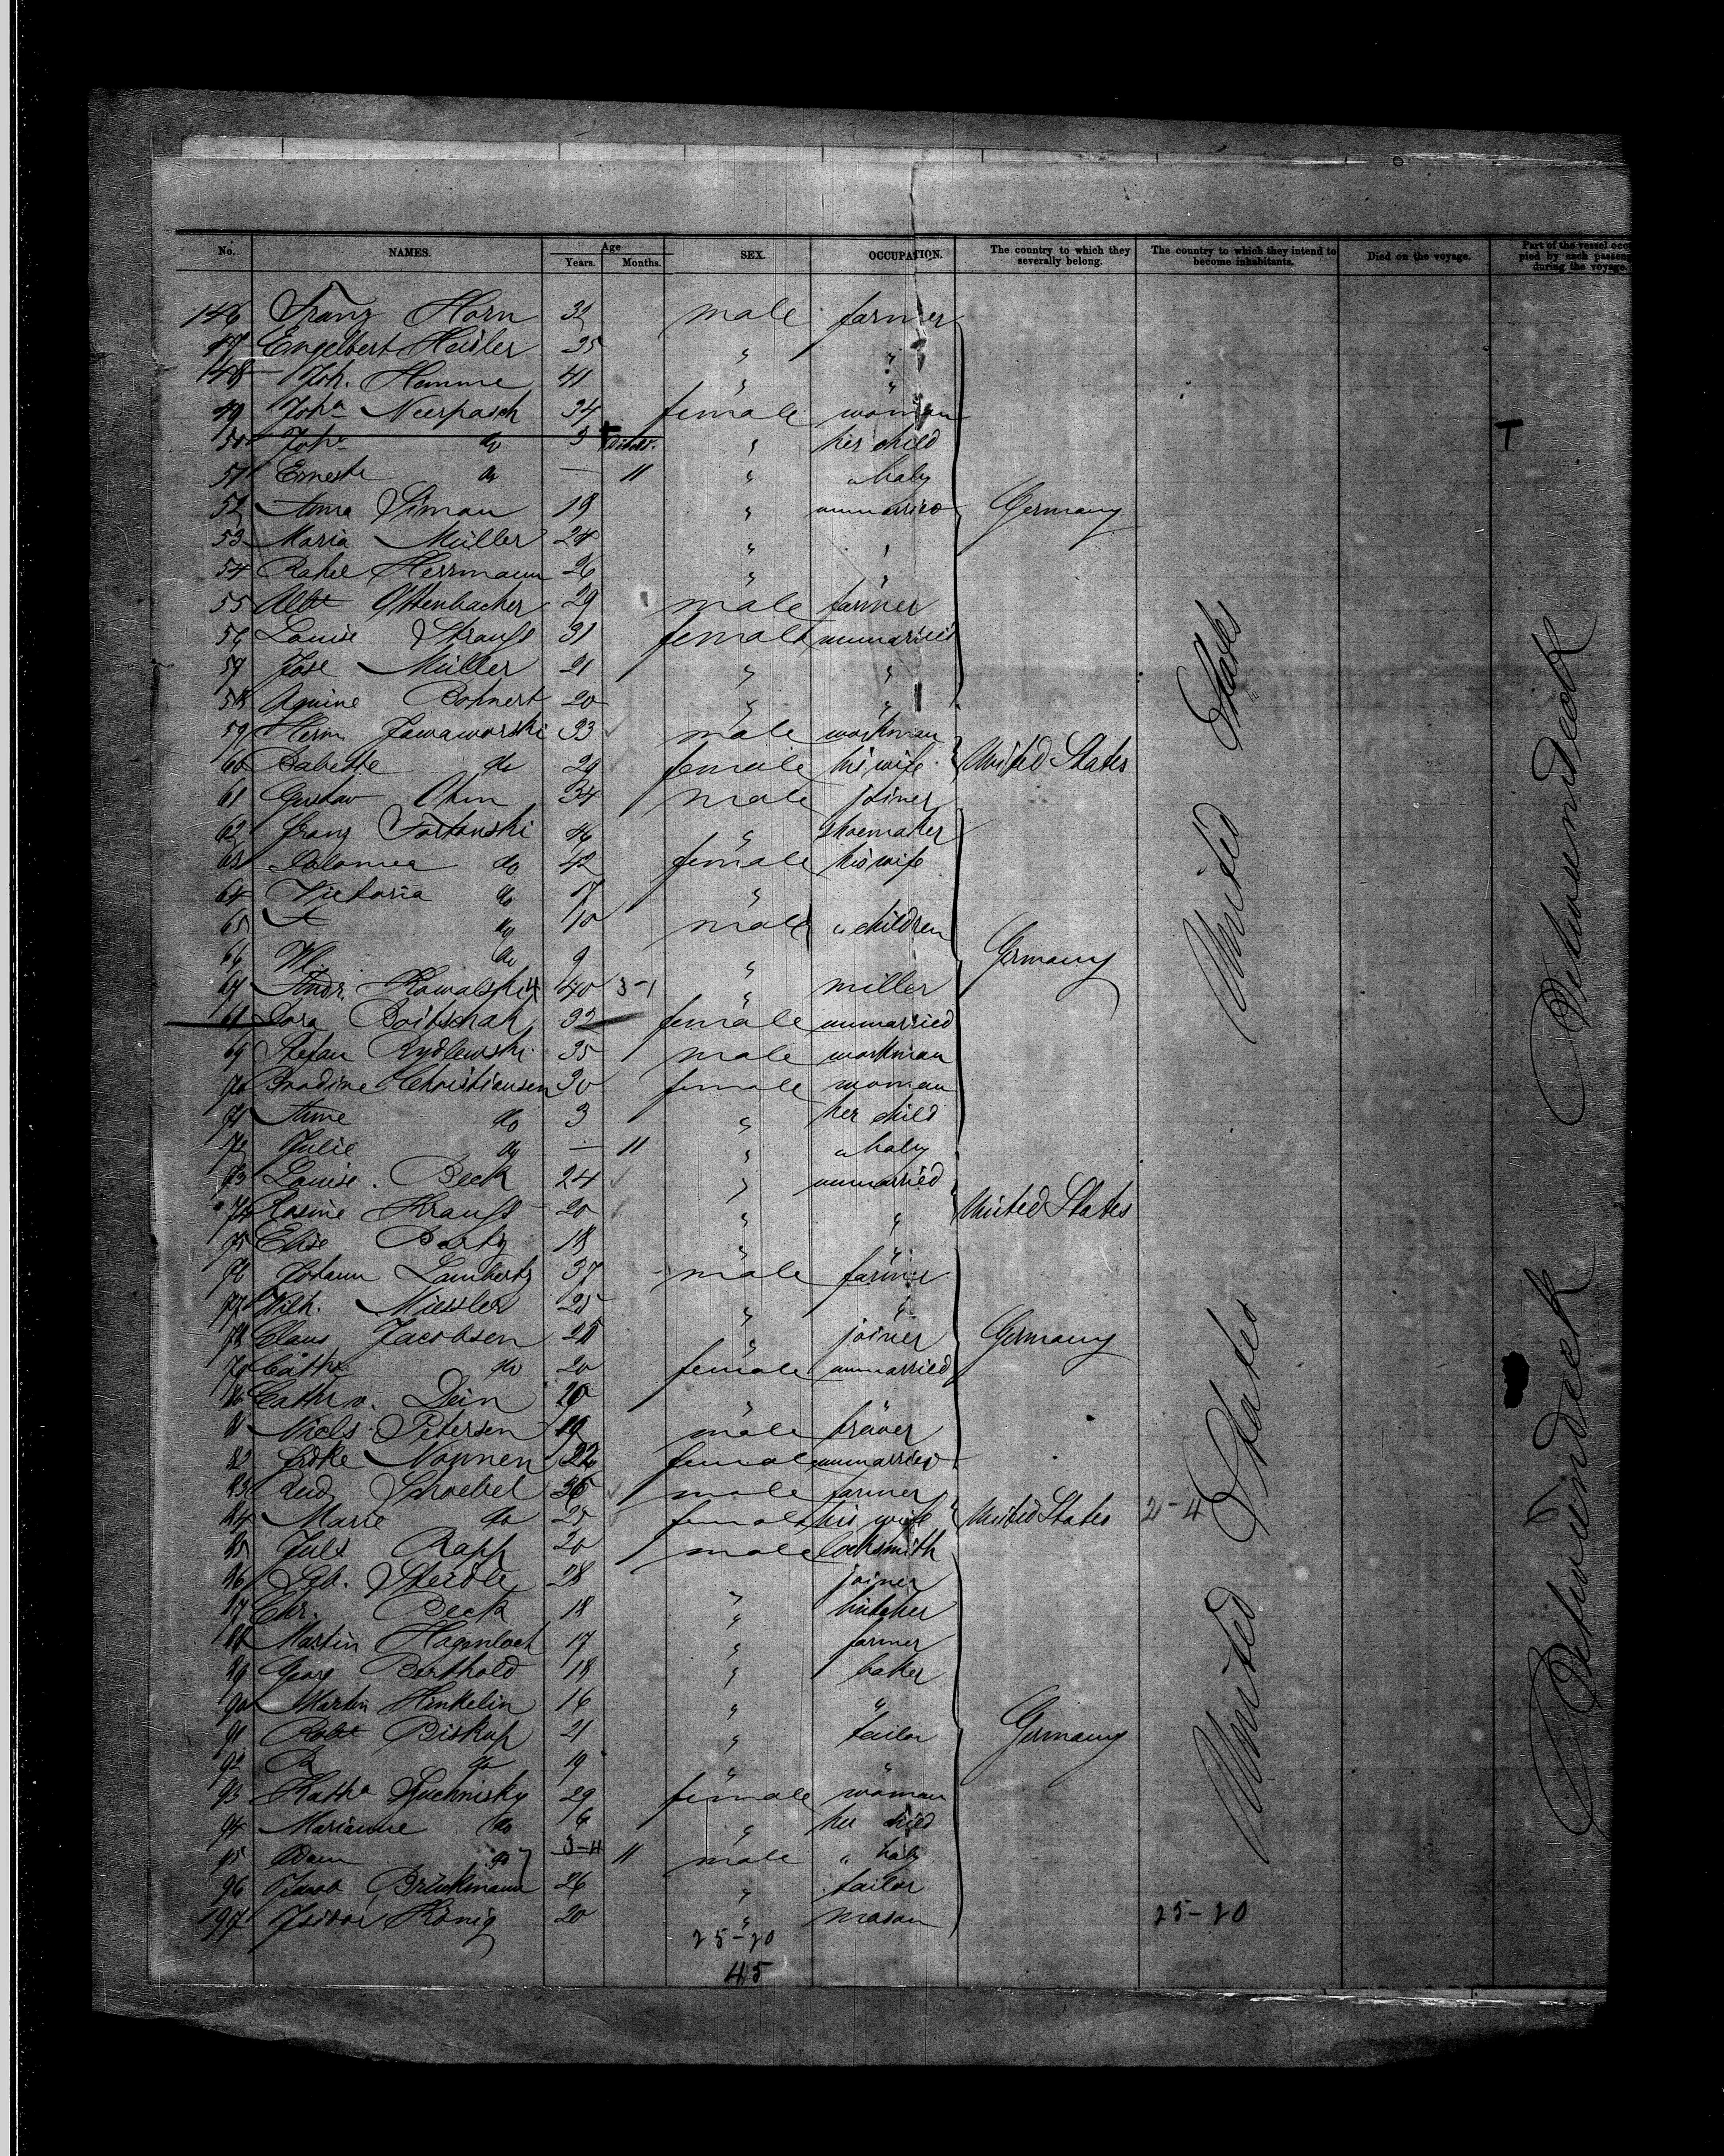 No. NAMES. Age Years. Months. SEX. OCCUPATION. The country to which they severally belong. The country to which they intend to become inhabitants. Died on the voyage. Part of the vessel occupied by each passenger during the voyage.
146 Franz Horn 32 male farmer
47 Engelbert Heisler 35 " "
148 Joh. Hemme 41 " "
49 Joha Neerpasch 34 female woman
50 Joha do 3 " her child
51 Ernest do — 11 " " baby
52 Anna Simon 19 " unmarried Germany
53 Maria Müller 24 " "
54 Rahel Herrmann 26 " "
55 Albt Ottenbacher 29 male farmer
56 Louise Strauss 31 female unmarried
57 Jose Müller 21 " "
58 Bohnert 20 " "
59 Herm. Jawaworski 33 male workman
60 Babette do 29 female his wife United States
61 Gustav Ohm 34 male joiner
62 Franz 46 " shoemaker
63 Salomea do 42 female his wife
64 Victoria do "
65 do 10 male " children
66 do 9 " Germany
67 Andr. Kowalski 40 " miller
68 Dora 32 female unmarried
69 Stefan Rydlewski 35 male workman
70 Christiansen 30 female woman
71 Anne do 3 " her child
72 Julie do — 11 " " baby
73 Louise Beck 24 " unmarried
74 Rosine Krauss 20 " " United States
75 Elise 18 " "
76 Johann Lambertz 37 male farmer
77 Wilh. Miessler 25 " "
78 Claus Jacobsen 28 " joiner Germany
79 Cathe do 20 female unmarried
80 Cath. v. Dein 20 " "
81 Niels Petersen 19 male
82 Nonnen 22 female unmarried
83 Rud. Schoebel 36 male farmer
84 Marie do 25 female his wife United States 2-4
85 Juls Rapp 20 male locksmith
86 28 " joiner
87 Chr. Beck 18 " butcher
88 Martin Hagenloch 17 " farmer
89 Georg Berthold 18 " baker
90 Martin Hinkelin 16 " "
91 Robt Biskup 21 " tailor Germany
92 do 19 " "
93 Katha 29 female woman
94 Marianne do " her child
95 do 11 male " baby
96 Jacob Brückmann 26 " tailor
197 Isidor König 20 " mason 25-20
25-20
45
United States
United States